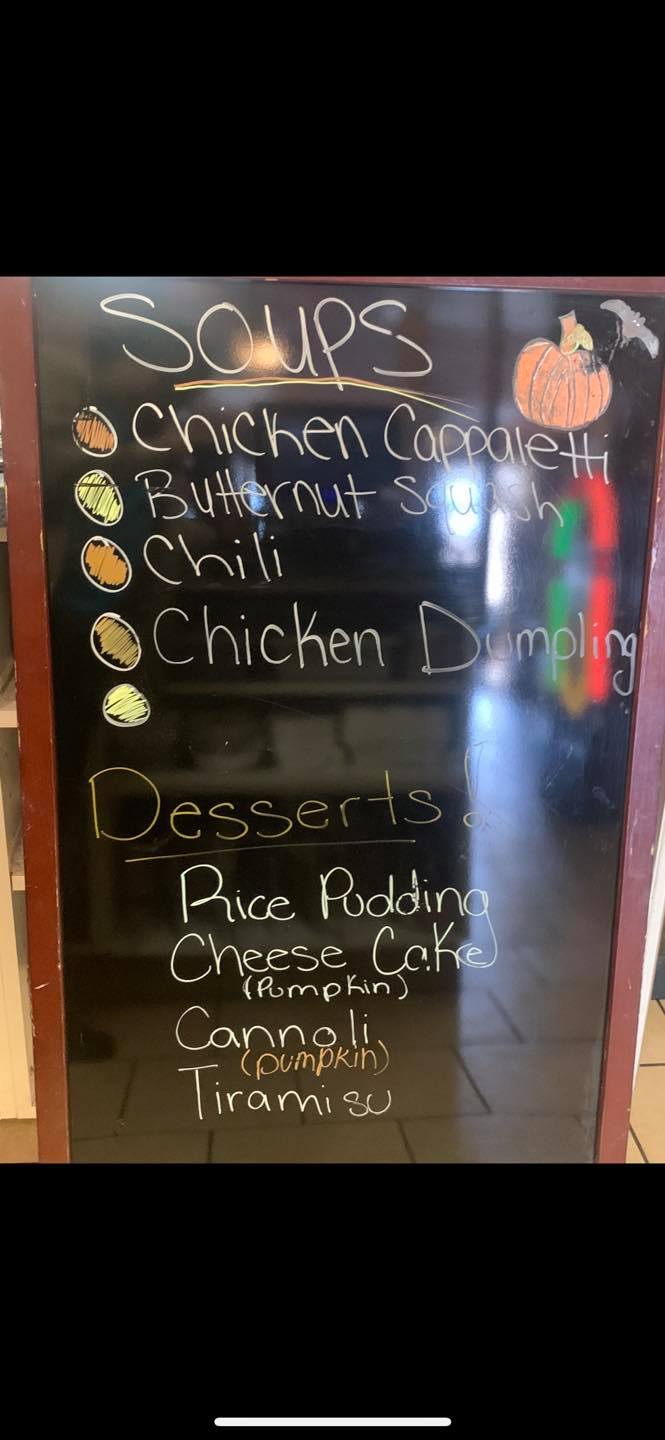 Soups
Chicken Cappaletti
Butternut Squash
Chili
Chicken Dumpling
Desserts!
Rice Pudding
Cheese Cake
(Pumpkin)
Cannoli
(pumpkin)
Tiramisu